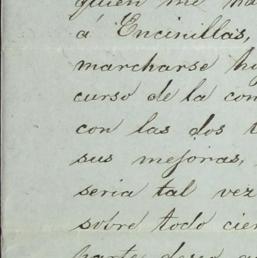 quien me ha
á Encinillas,
marcharse ho
curso de la con
con las dos t
sus mejoras,
seria tal vez
sobre todo cier
parte deseo